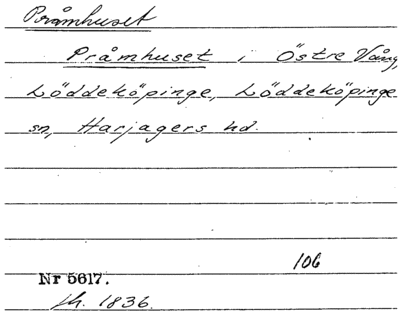 Pråmhuset
Pråmhuset i Östre Vång,
Löddeköpinge, Löddeköpinge
sn, Harjagers hd.
106
Nr 5617.
jh. 1836.